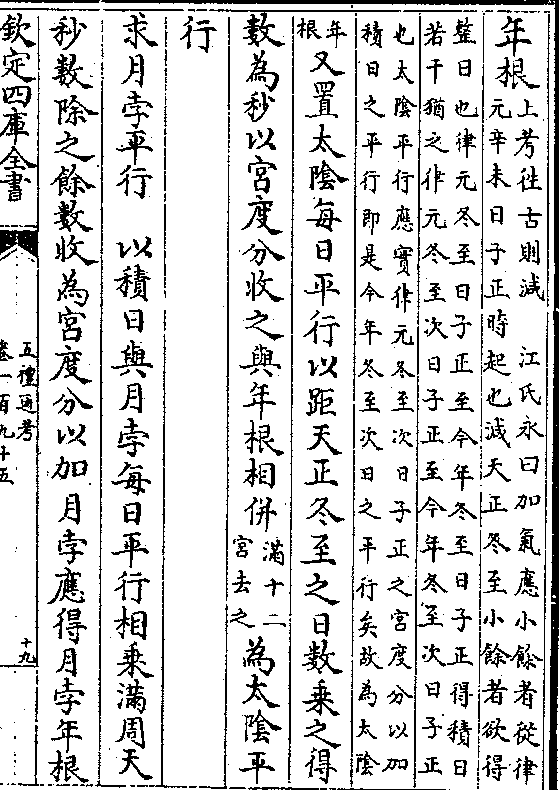 年根上考往古則減　江氏永曰加氣應小餘者從律
元辛未日子正時起也減天正冬至小餘者欲得
整日也律元冬至日子正至今年冬至日子正得積日
若干猶之律元冬至次日子正至今年冬至次日子正
也太陰平行應實律元冬至次日子正之宮度分以加
積日之平行即是今年冬至次日之平行矣故為太陰
年根又置太陰每日平行以距天正冬至之日數乘之得
數為秒以宮度分收之與年根相併滿十二宮去之為太陰平
行
求月孛平行　以積日與月孛每日平行相乘滿周天
秒數除之餘數收為宮度分以加月孛應得月孛年根
欽定四庫全書
五禮通考
卷一百九十五
十九